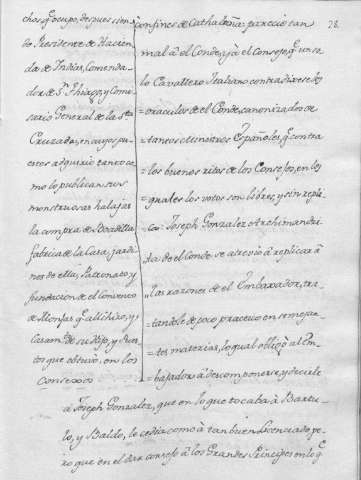 28
chos q̃ ocupo, despues siendo
do Presidente de Hacien
da de Indias, Comenda
dor de S.ⁿ Thiago, y Comi
sario General de la S.ᵗᵃ
Cruzada, en cuyos pu
estos adquirio tanto co
mo lo publican sus
monstruosas halajas
la compra de Boadilla
fabrica de la Casa, jardi
nes de ella, Patronato, y
fundacion de el Convento
de Monjas q̃ alli hizo, y
Casam.ᵗᵒ de su Hijo, y Pues
tos que obtuvo en los
Consexos
confines de Cathaluña: parecio tan
mal â el Conde, y â el Consejo, q̃ un so
lo Cavallero Italiano contradixese los
= oraculos de el Conde, canonizados de
= tantos Ministros Españoles, q̃ contra
= los buenos ritos de los Consejos, en los
= quales los votos son libres, y sin repli
= ca: Joseph Gonzalez Archimandri
ta de el Conde se atrevio â replicar â
las razones de el Embaxador, tra
= tandole de poco practico en semejan
= tes materias, lo qual obligò al Em
= bajador â descomponerse, y decirle
â Joseph Gonzalez, que en lo que tocaba â Bartu
lo, y Baldo, le cedia como â tan buen Licenciado pe
ro que en el dar consejo â los Grandes Principes en lo q̃